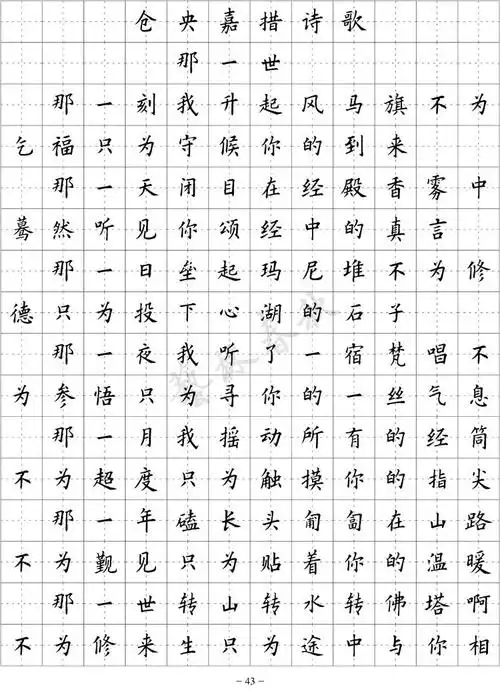 仓央嘉措诗歌
那一世
那一刻我升起风马旗不为
乞福只为守候你的到来
那一天闭目在经殿香雾中
蓦然听见你颂经中的真言
那一日垒起玛尼堆不为修
德只为投下心湖的石子
那一夜我听了一宿梵唱不
为参悟只为寻你的一丝气息
那一月我摇动所有的经筒
不为超度只为触摸你的指尖
那一年磕长头匍匐在山路
不为觐见只为贴着你的温暖
那一世转山转水转佛塔啊
不为修来生只为途中与你相
- 43 -